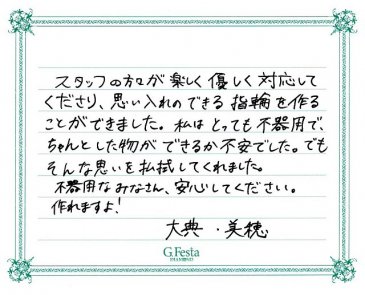 スタッフの方々が楽しく優しく対応して
くださり、思い入れのできる指輪を作る
ことができました。私はとっても不器用で、
ちゃんとした物ができるか不安でした。でも
そんな思いを払拭してくれました。
不器用なみなさん、安心してください。
作れますよ!
大典・美穂
G.Festa
DIAMOND